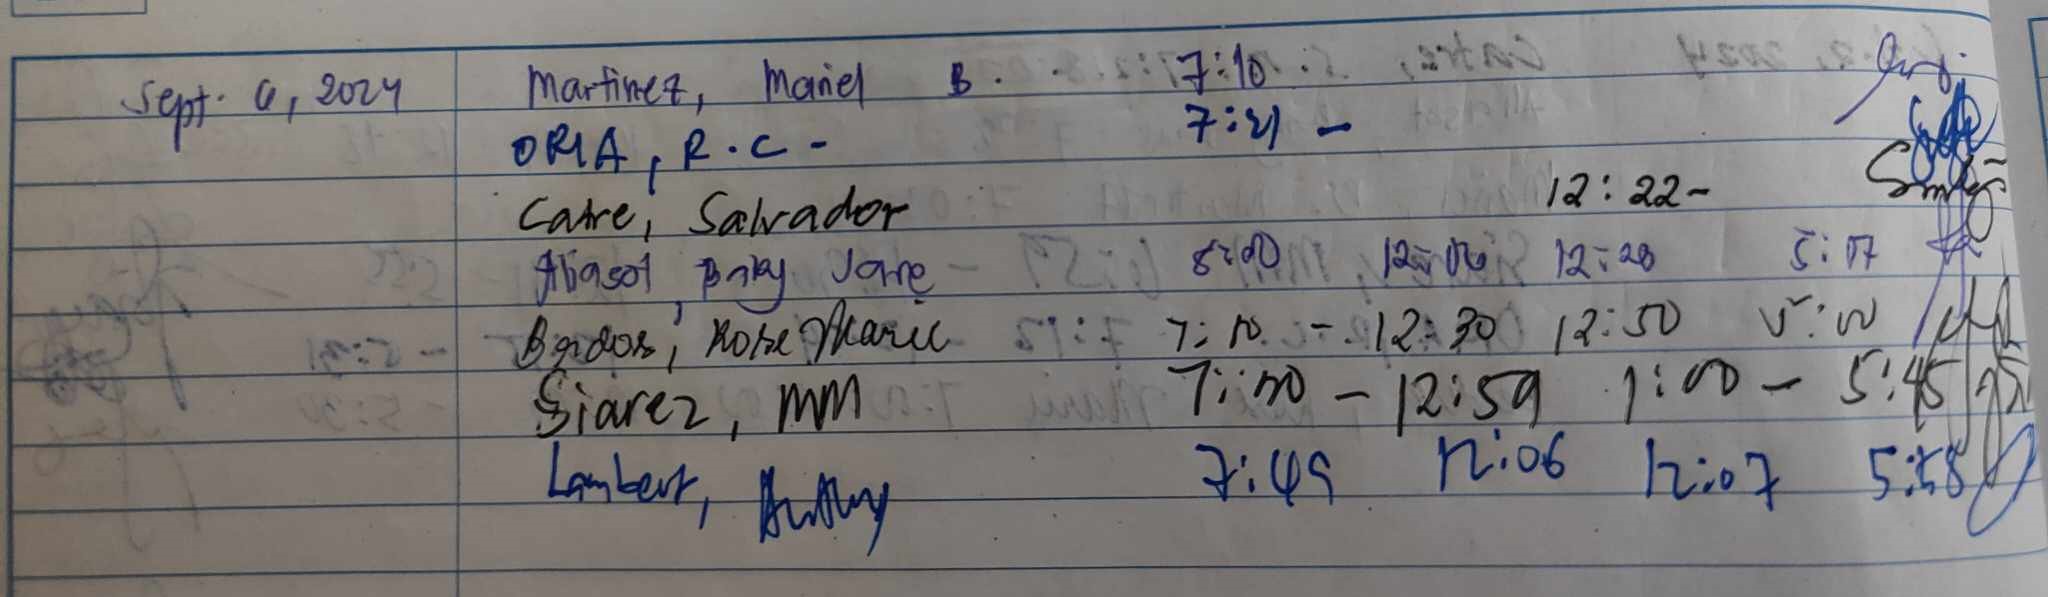 Sept. 6, 2024 Martinez, Mariel B. 7:10
ORIA, R.C - 7:21 -
Catre, Salvador 12:22-
Aliasot, Baby Jane 8:00 12:06 12:28 5:07
Bordos, Rose Marie 7:10 - 12:30 12:50 5:00
Siarez, MM 7:00 - 12:59 1:00 - 5:45
Lambert, Anthony 7:49 12:06 12:07 5:58